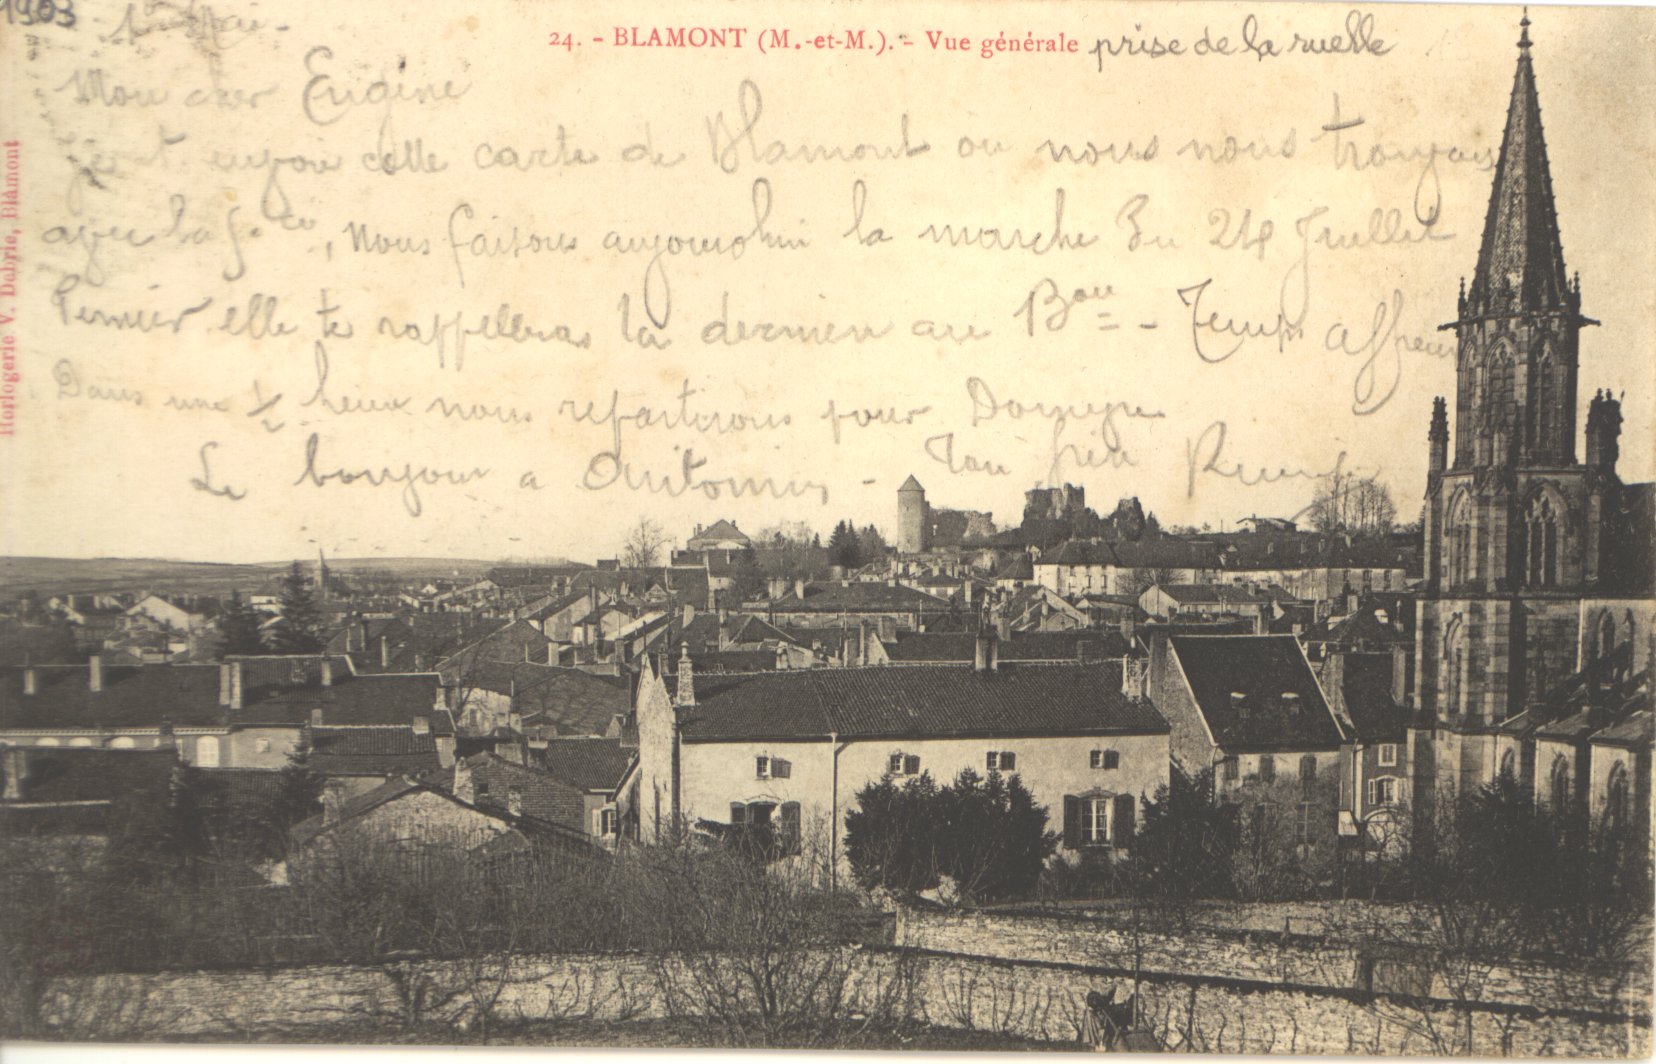 1903
24. - BLAMONT (M.-et-M.). - Vue générale prise de la ruelle
Mon cher Eugène
je t'envoie cette carte de Blamont ou nous nous trouvons
avec la, nous faisons aujourdhui la marche du 24 Juillet
dernier elle te rappellera la au Bon - Temps affreux
Dans une 1/2 heure nous repartirons pour Domèvre
Le bonjour a Antonin - Ton frère
Horlogerie V. Dabrie, Blâmont